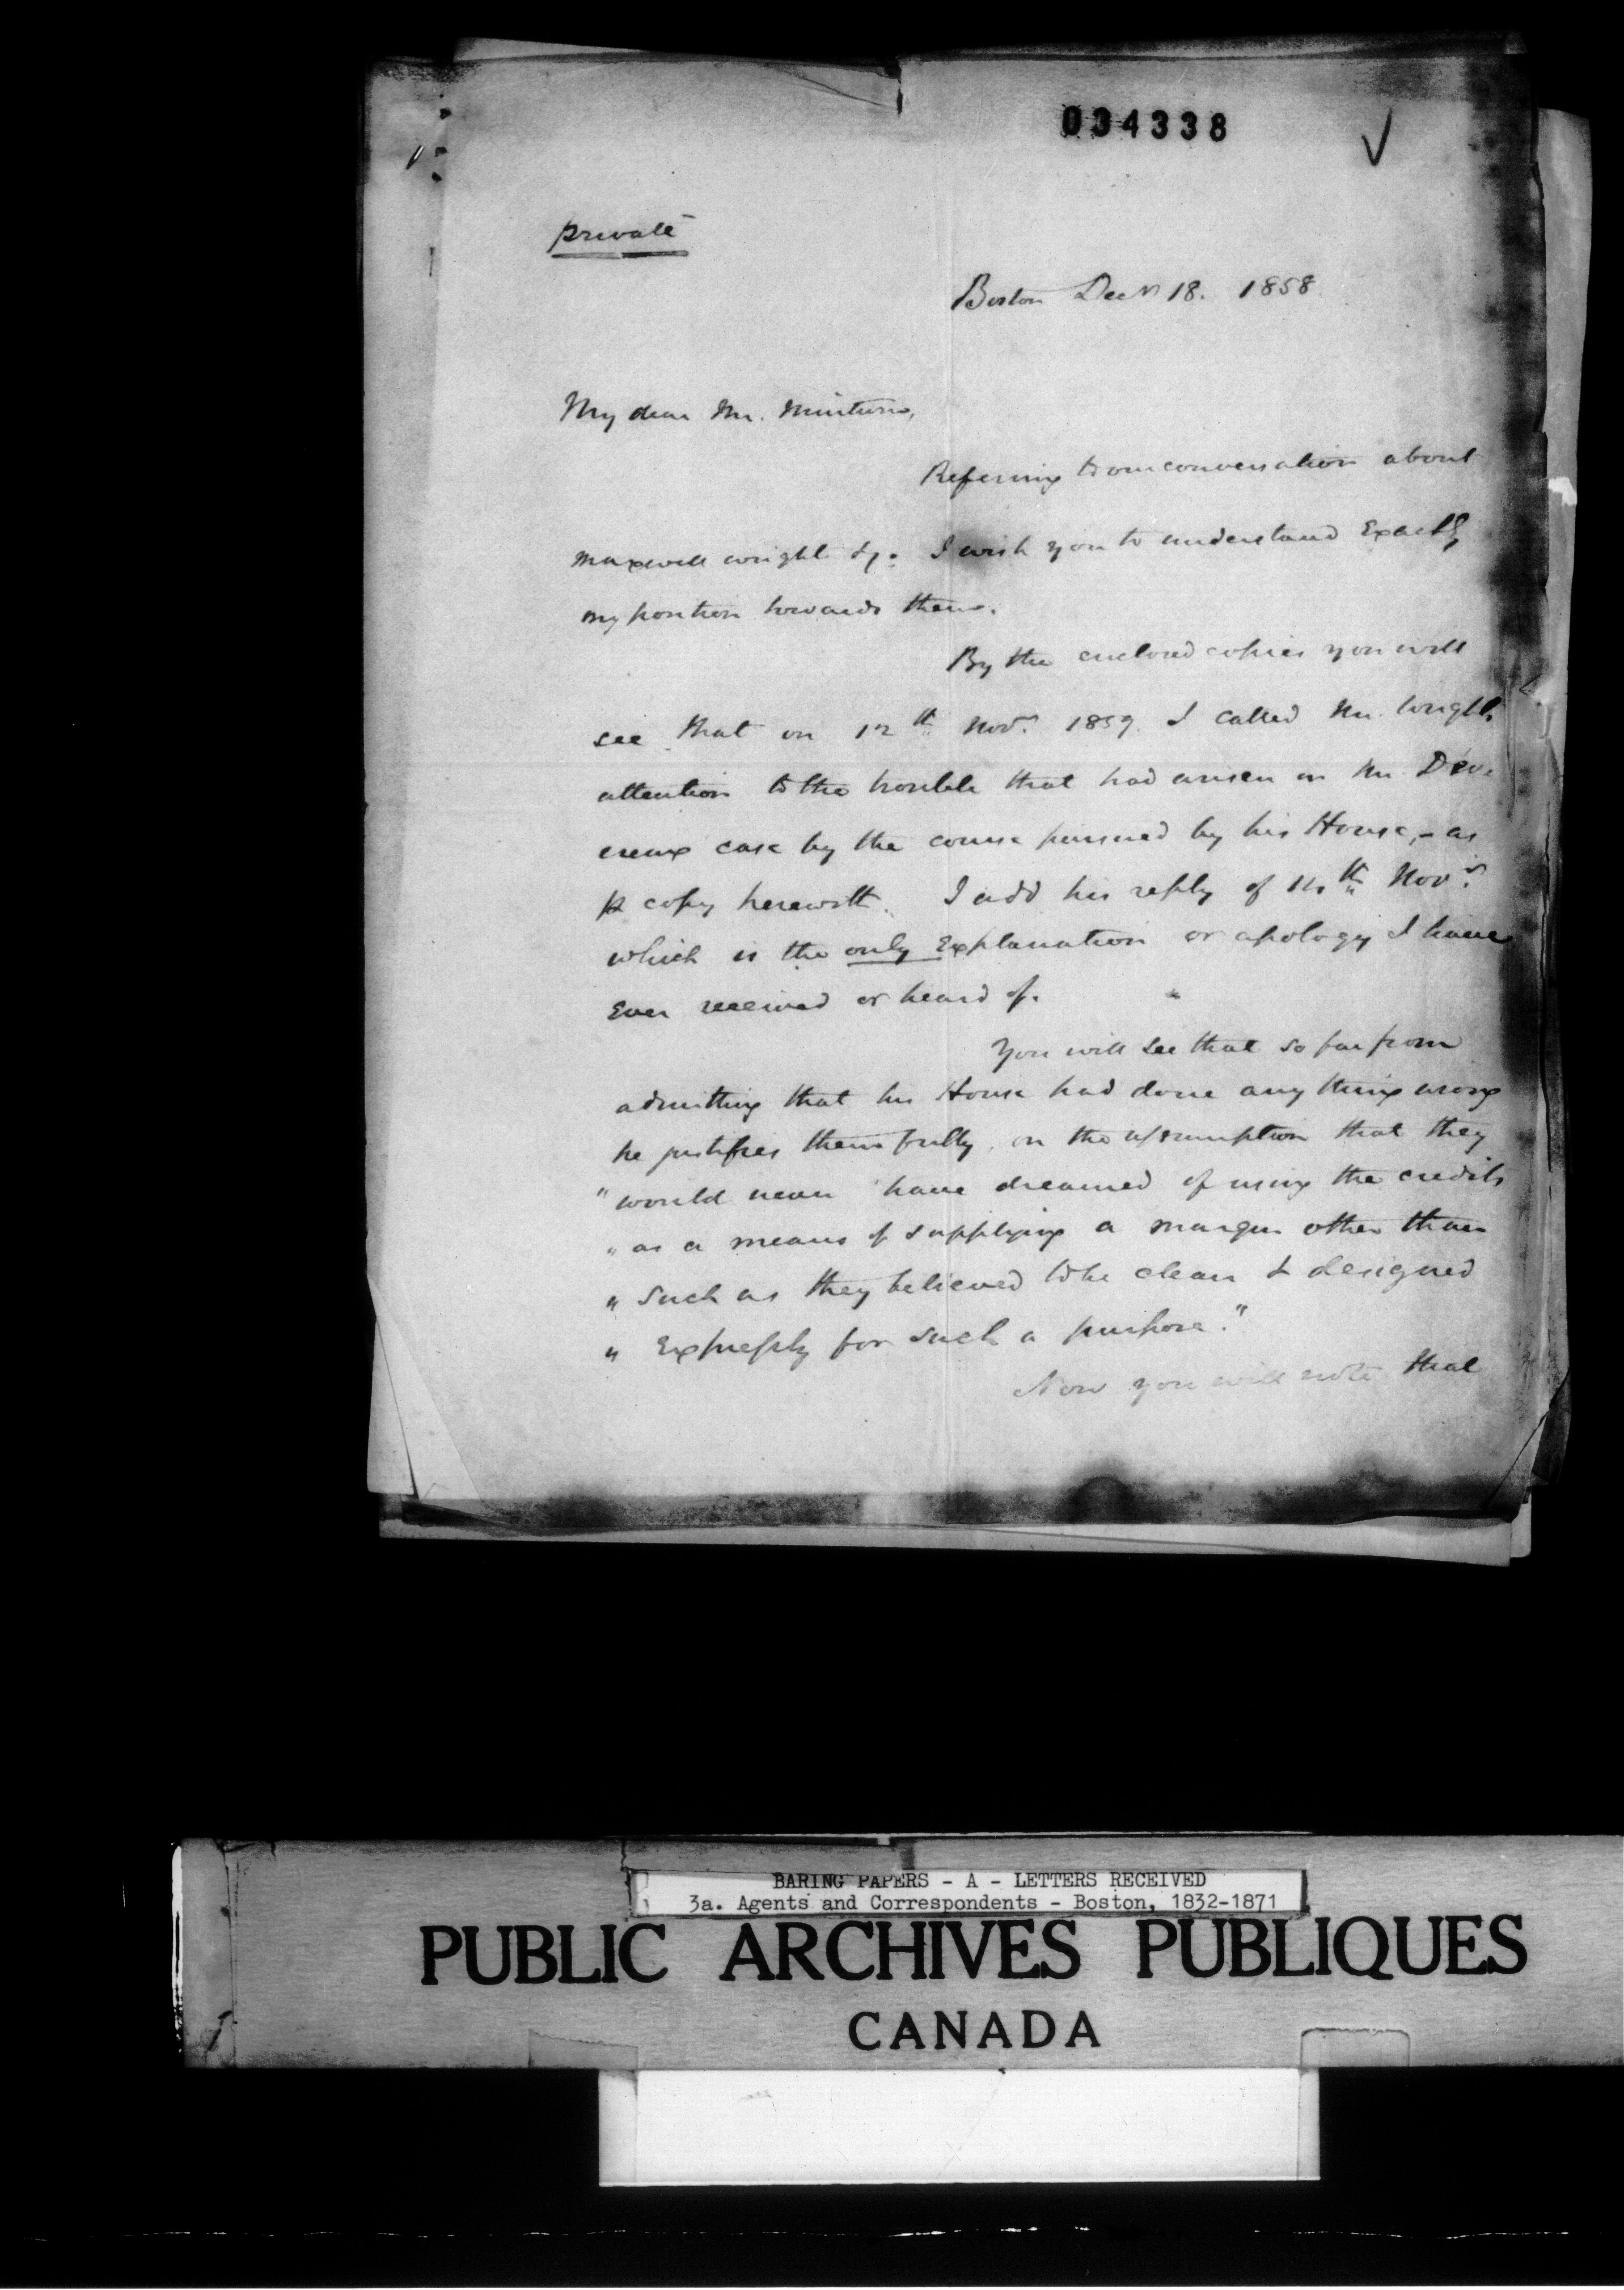 034338
private
Boston Decr 18. 1858
My dear Mr. Minturn,
Referring to our conversation about
Maxwell Wright & Co. I wish you to understand Exactly
my position towards them.
By the enclosed copies you will
see that on 12th Novr. 1857. I called Mr. Wright's
attention to the trouble that had arisen in Mr. Dev-
ereux case by the course pursued by his House, - as
p copy herewith. I add his reply of 14th Novr.
which is the only Explanation or apology I have
Ever received or heard of.
You will see that so far from
admitting that his House had done any thing wrong
he justifies them fully, on the assumption that they
"would never have dreamed of using the credits
"as a means of supplying a margin other than
"such as they believed to be clean & designed
"Expressly for such a purpose."
Now you will note that
BARING PAPERS - A - LETTERS RECEIVED
3a. Agents and Correspondents - Boston, 1832-1871
PUBLIC ARCHIVES PUBLIQUES
CANADA